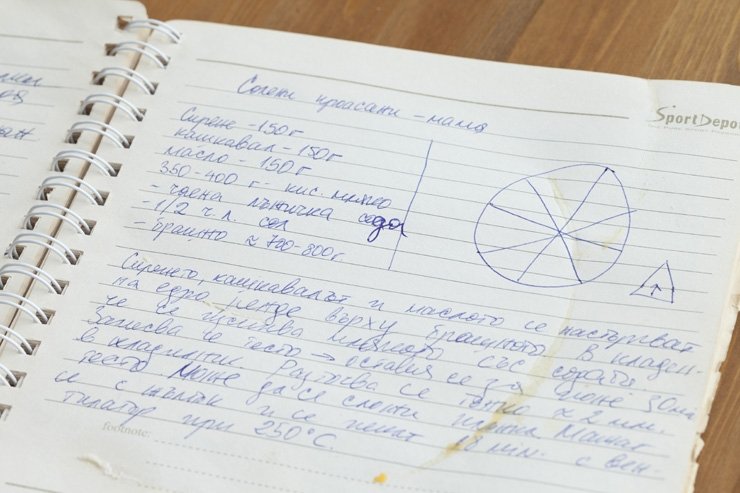 Солени кроасани - мама
Сирене - 150 г
кашкавал - 150 г
масло - 150 г
350-400 г - кис. мляко
- чаена лъжичка сода
- 1/2 ч.л. сол
- брашно ≈ 700-800 г.
SportDepo
Сиренето, кашкавалът и маслото се настъргват
на едро ренде върху брашното. В кладен-
че се изсипва млякото със содата.
Замесва се тесто → оставя се за поне 30 мин
в хладилник. Разточва се тънко ≈ 2 мм.
тесто. Може да се сложи плънка. Мажат
се с жълтък и се пекат 10 мин. с вен-
тилатор при 250°C.
footnote: